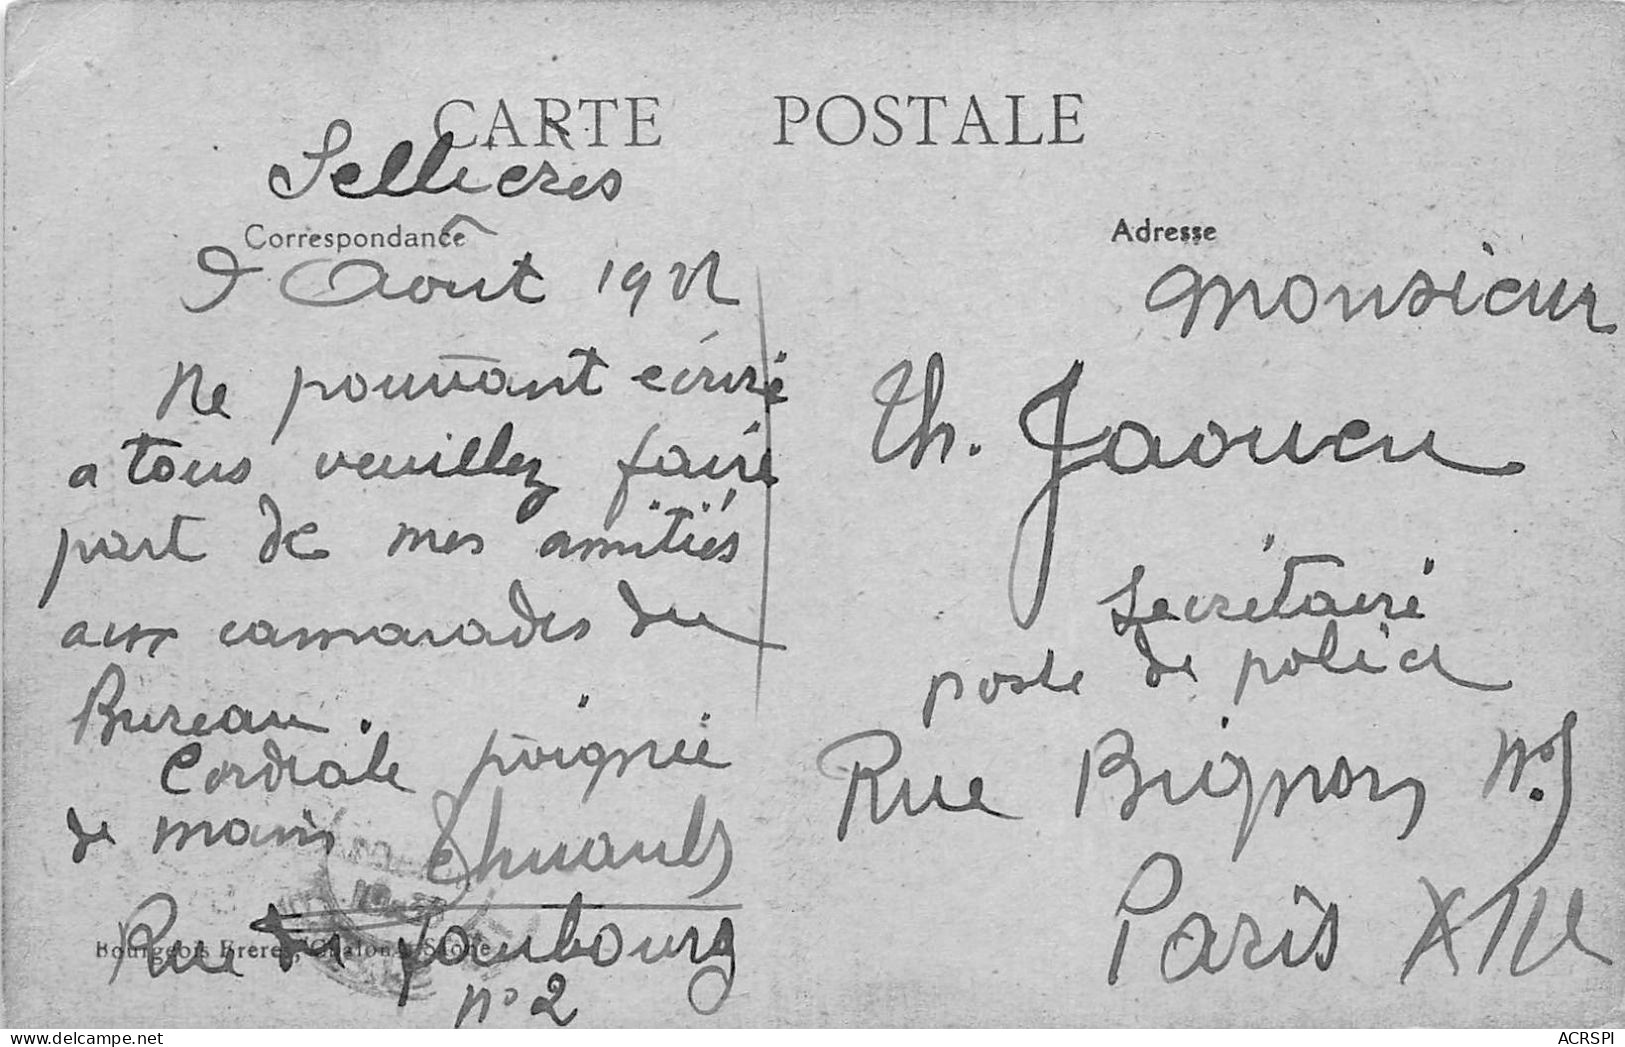 CARTE POSTALE
Sellieres
Correspondance
9 Août 19
Ne pouvant écrire
a tous veuillez faire
part de mes amitiés
aux camarades du
Bureau.
Cordiale poignée
de main
Rue du faubourg
n° 2
Bourgeois Frères, Chalon-s-Saône
Adresse
Monsieur
Th. Jaouen
Secrétaire
poste de police
Rue Bignon N°
Paris XIIe
delcampe.net
ACRSPI